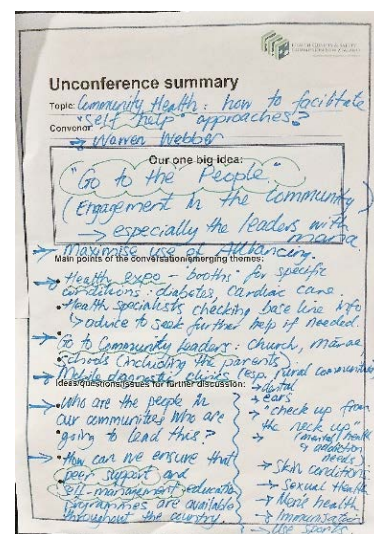 Unconference summary
Topic: Community Health: how to facilitate
"self help" approaches?
Convenor
→ Warren Webber
Our one big idea:
"Go to the People"
(Engagement in the Community)
→ especially the leaders with mana
→ Maximise use of Advancing.
Main points of the conversation/emerging themes:
→ Health expo - booths for specific
conditions: diabetes, cardiac care
• Health specialists checking base line info
↳ advice to seek further help if needed.
→ Go to Community Leaders: church, marae
• schools (including the parents)
→ Mobile diagnostic clinics (esp. rural communities)
Ideas/questions/issues for further discussion:
→ Who are the people in
our communities who are
going to lead this?
→ How can we ensure that
peer support and
self-management education
programmes are available
throughout the country.
→ dental
→ ears
→ "check up from
the neck up"
(mental health
addiction
needs)
→ Skin conditions
→ Sexual Health
→ Men's health
→ Immunisation
→ Use sports